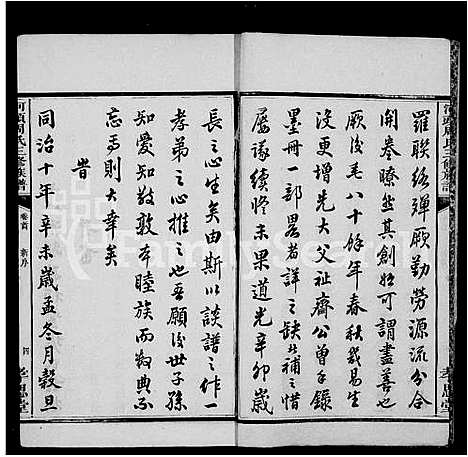 羅聯絡殫厥勤勞源流分合
開卷瞭然其創始可謂盡善也
厥後毛八十餘年春秋幾易生
沒更增先大父祉齋公曾手錄
墨冊一部畧者詳之缺者補之惜
屢議續修未果道光辛卯歲
長之心生矣由斯以談譜之作一
孝弟之心推之也吾願後世子孫
知愛知敬敦本睦族而數典不
忘焉則大幸矣
旹
同治十年辛未歲孟冬月穀旦
河頭周氏三修族譜
卷首
新序
四
孝思堂
FamilySearch